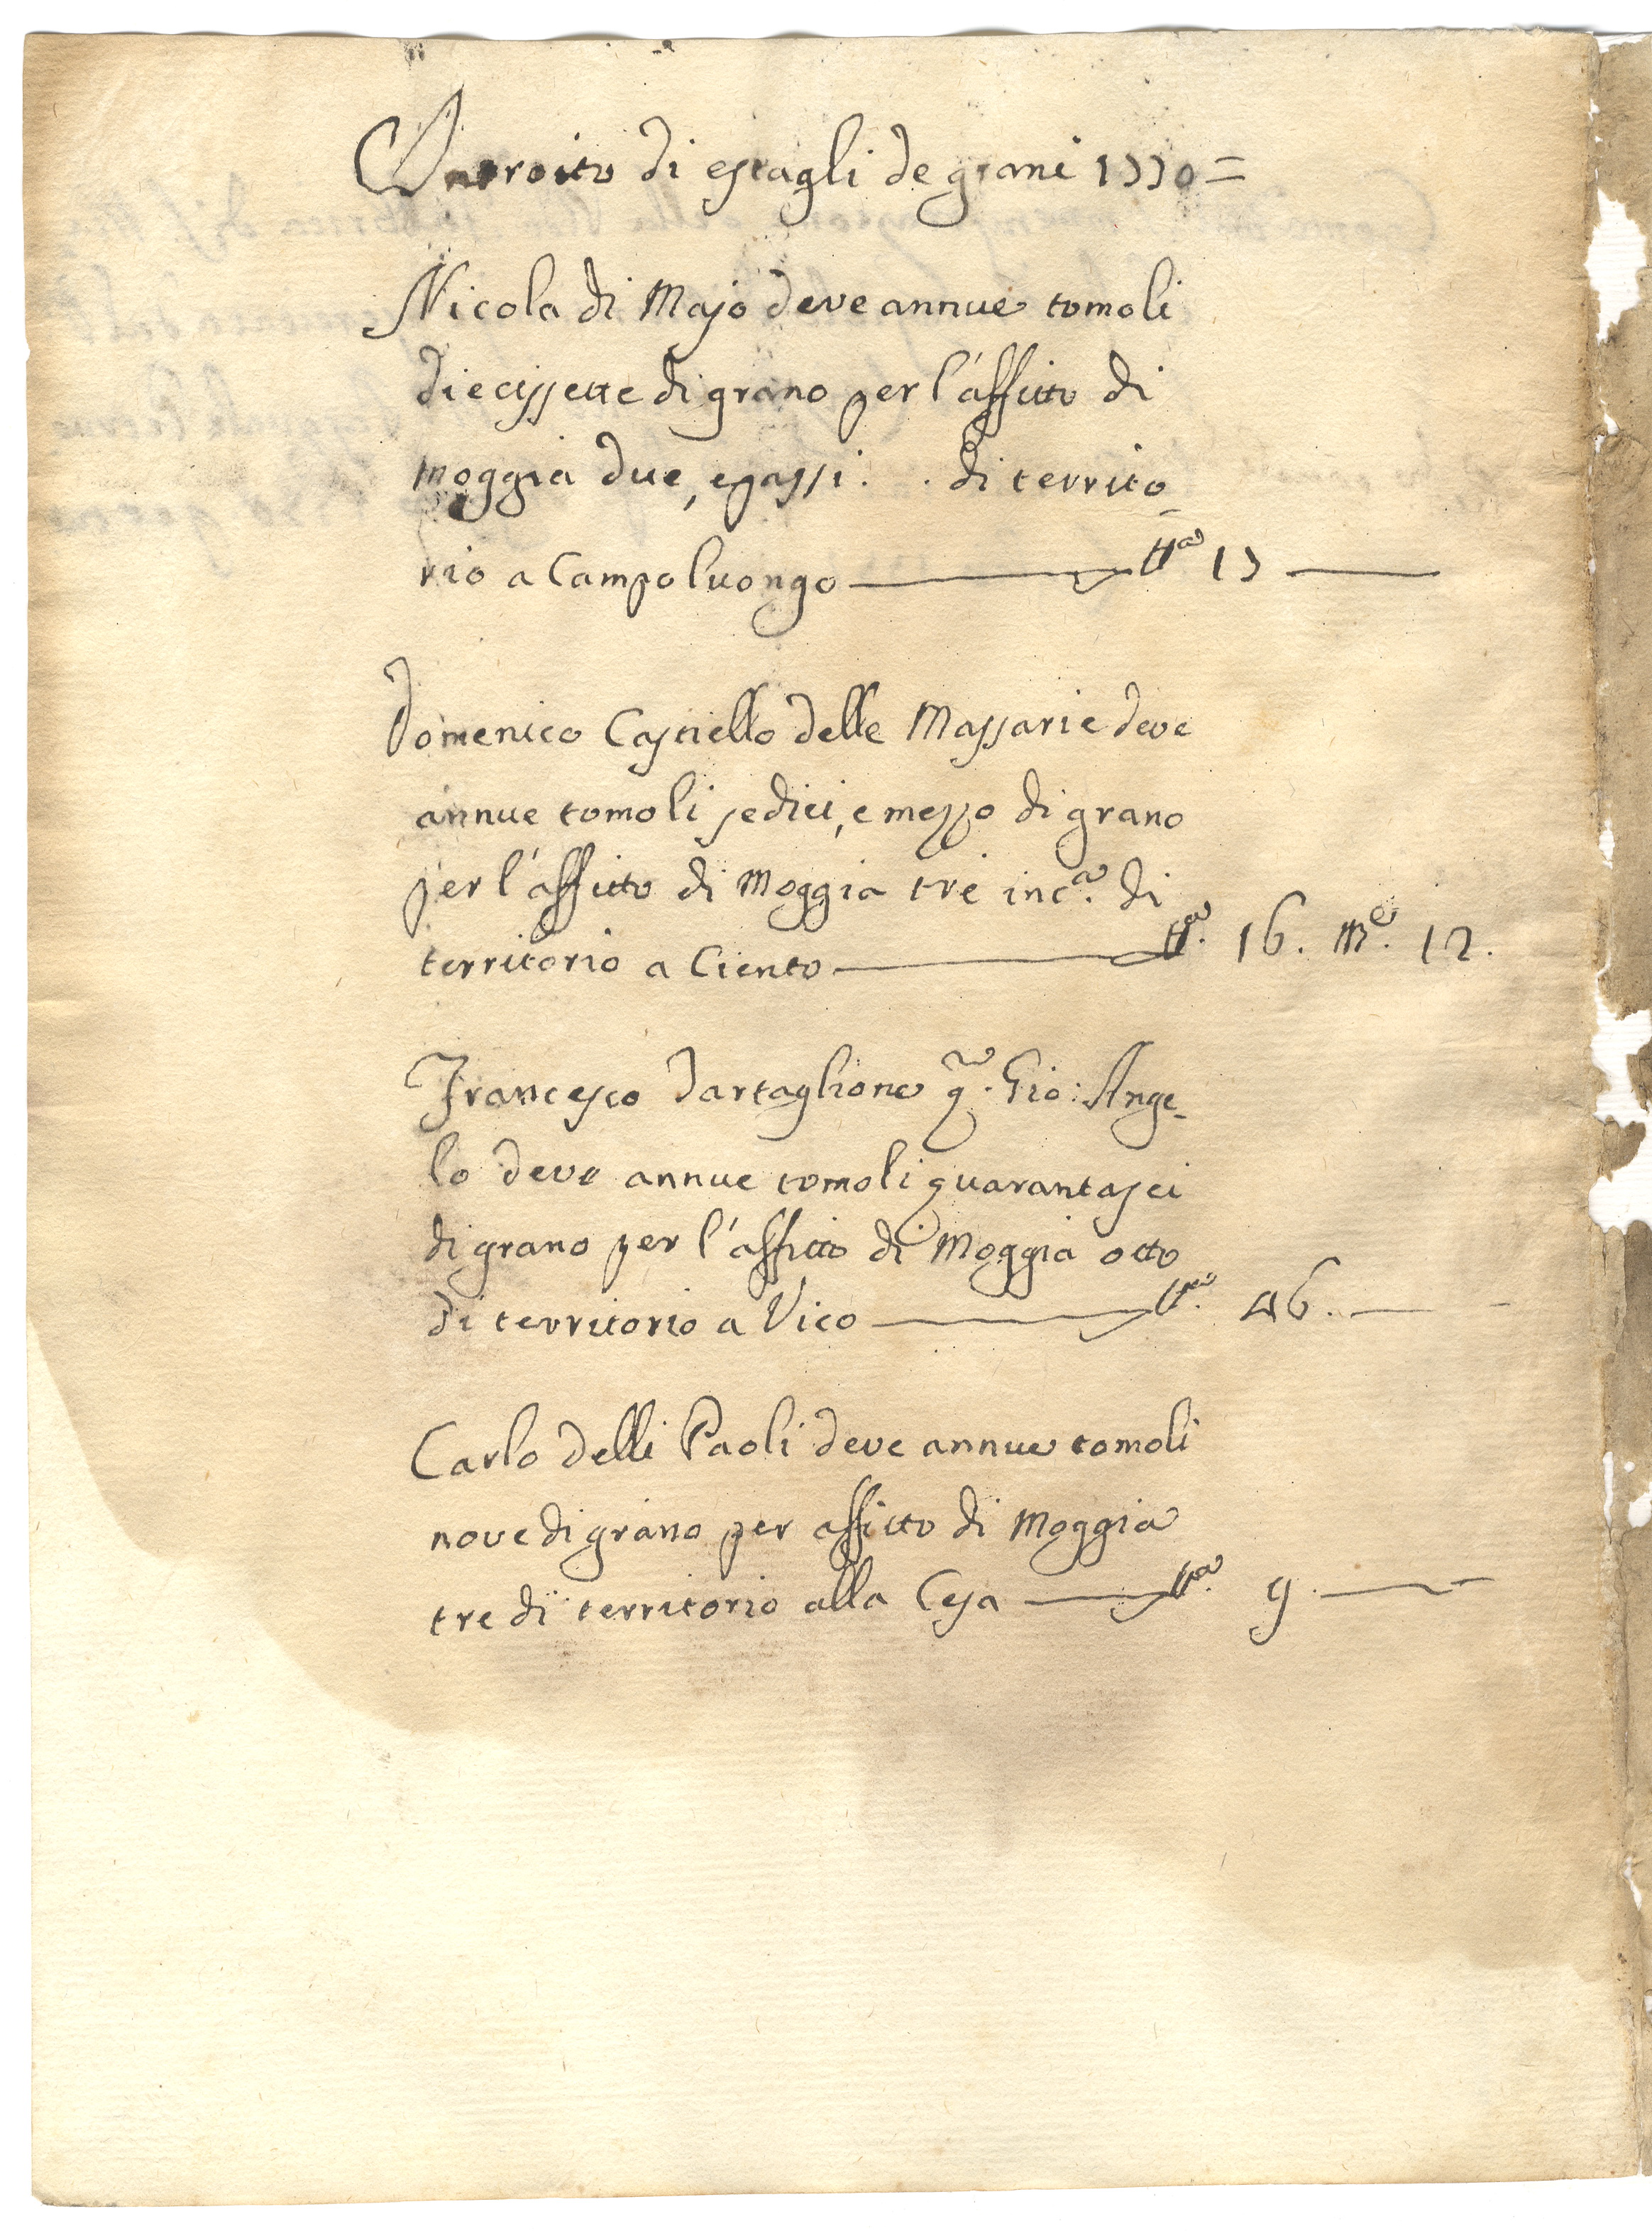 Introito di estagli de grani 1770=
Nicola di Majo deve annue tomoli
diecissette di grano per l'affitto di
moggia due, e passi . . di territo-
rio a Campoluongo tta 17
Domenico Castiello delle Massarie deve
annue tomoli sedici, e mezzo di grano
per l'affitto di Moggia tre inc.a di
territorio a Ciento tta. 16. m.e 12.
Francesco Tartaglione q.m Gio: Ange-
lo deve annue tomoli quarantasei
di grano per l'affitto di Moggia otto
di territorio a Vico tta. 46.
Carlo delli Paoli deve annue tomoli
nove di grano per affitto di Moggia
tre di territorio alla Cesa tta. 9.